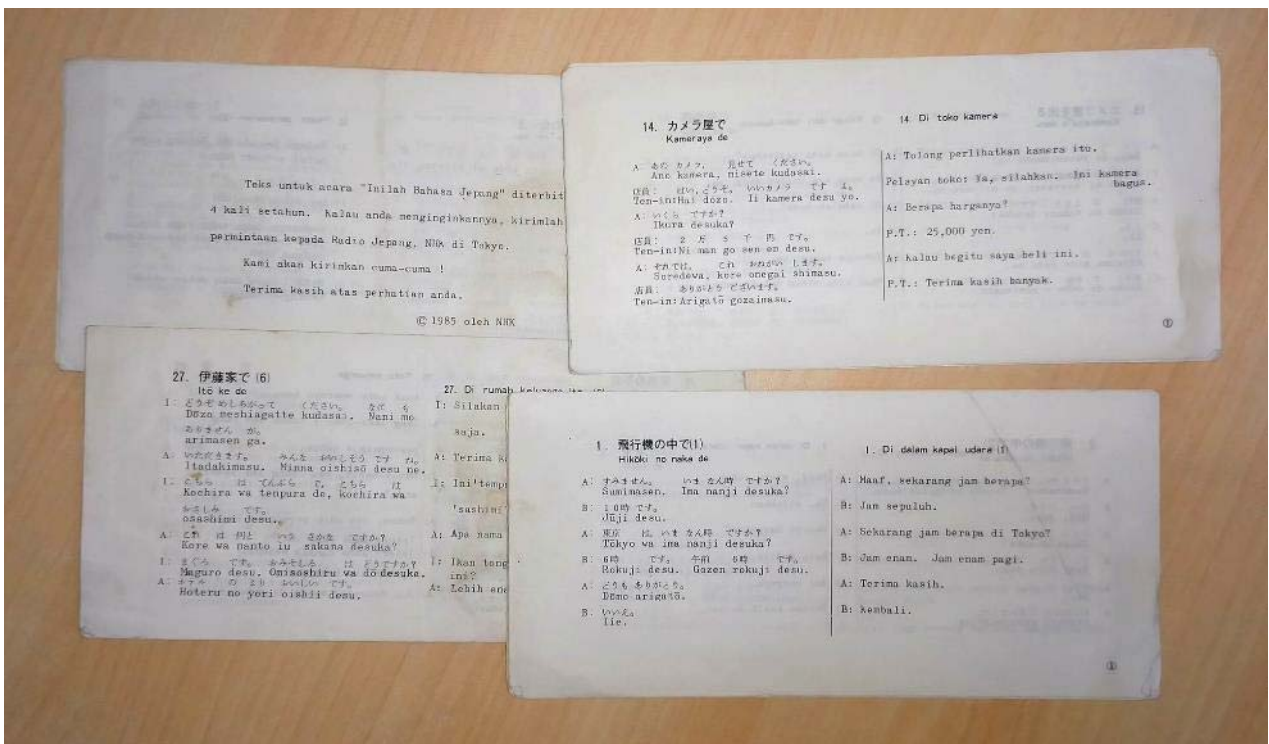 Teks untuk acara "Inilah Bahasa Jepang" diterbit
4 kali setahun. Kalau anda menginginkannya, kirimlah
permintaan kepada Radio Jepang, NHK di Tokyo.
Kami akan kirimkan cuma-cuma !
Terima kasih atas perhatian anda.
© 1985 oleh NHK
14. カメラ屋で
Kameraya de
A: あの カメラ, 見せて ください。
Ano kamera, misete kudasai.
店員: はい, どうぞ, いいカメラ です よ。
Ten-in:Hai dōzo. Ii kamera desu yo.
A: いくら ですか?
Ikura desuka?
店員: 2 万 5 千 円 です。
Ten-in:Ni man go sen en desu.
A: それでは, これ おねがい します。
Soredewa, kore onegai shimasu.
店員: ありがとう ございます。
Ten-in:Arigatō gozaimasu.
14. Di toko kamera
A: Tolong perlihatkan kamera itu.
Pelayan toko: Ya, silahkan. Ini kamera
bagus.
A: Berapa harganya?
P.T.: 25,000 yen.
A: Kalau begitu saya beli ini.
P.T.: Terima kasih banyak.
①
27. 伊藤家で (6)
Itō ke de
I: どうぞ めしあがって ください。 なにも
Dōzo meshiagatte kudasai. Nani mo
ありません が。
arimasen ga.
A: いただきます。 みんな おいしそう です ね。
Itadakimasu. Minna oishisō desu ne.
I: こちら は てんぷら で, こちら は
Kochira wa tenpura de, kochira wa
おさしみ です。
osashimi desu.
A: これ は 何と いう さかな ですか?
Kore wa nanto iu sakana desuka?
I: まぐろ です。 おみそしる は どうですか?
Maguro desu. Omisoshiru wa dō desuka.
A: ホテル の より おいしい です。
Hoteru no yori oishii desu.
27. Di rumah keluarga
I: Silakan
saja.
A: Terima
I: Ini 'temp
'sashimi'
A: Apa nama
I: Ikan tong
ini?
A: Lebih
1. 飛行機の中で(1)
Hikōki no naka de
A: すみません。 いま なん時 ですか?
Sumimasen. Ima nanji desuka?
B: 10時 です。
Jūji desu.
A: 東京 は, いま なん時 ですか?
Tōkyo wa ima nanji desuka?
B: 6時 です。 午前 6時 です。
Rokuji desu. Gozen rokuji desu.
A: どうも ありがとう。
Dōmo arigatō.
B: いいえ。
Iie.
1. Di dalam kapal udara (1)
A: Maaf, sekarang jam berapa?
B: Jam sepuluh.
A: Sekarang jam berapa di Tokyo?
B: Jam enam. Jam enam pagi.
A: Terima kasih.
B: kembali.
①